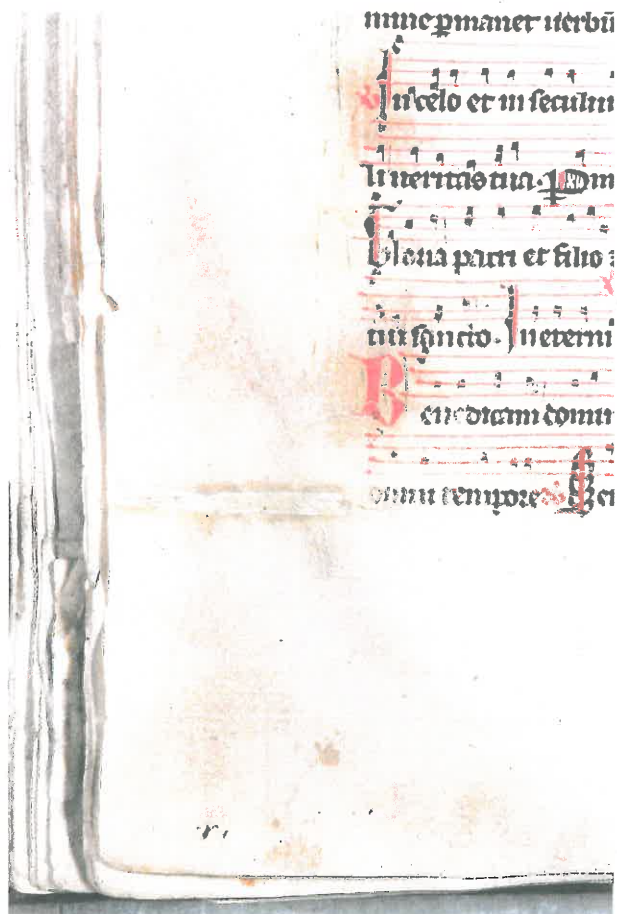 mine p̄manet uerbū
In celo et in seculum
li ueritas tua. Dom
Gloria patri et filio
tui sancto. In eterni
Benedicam domin
omni tempore Sem
r.